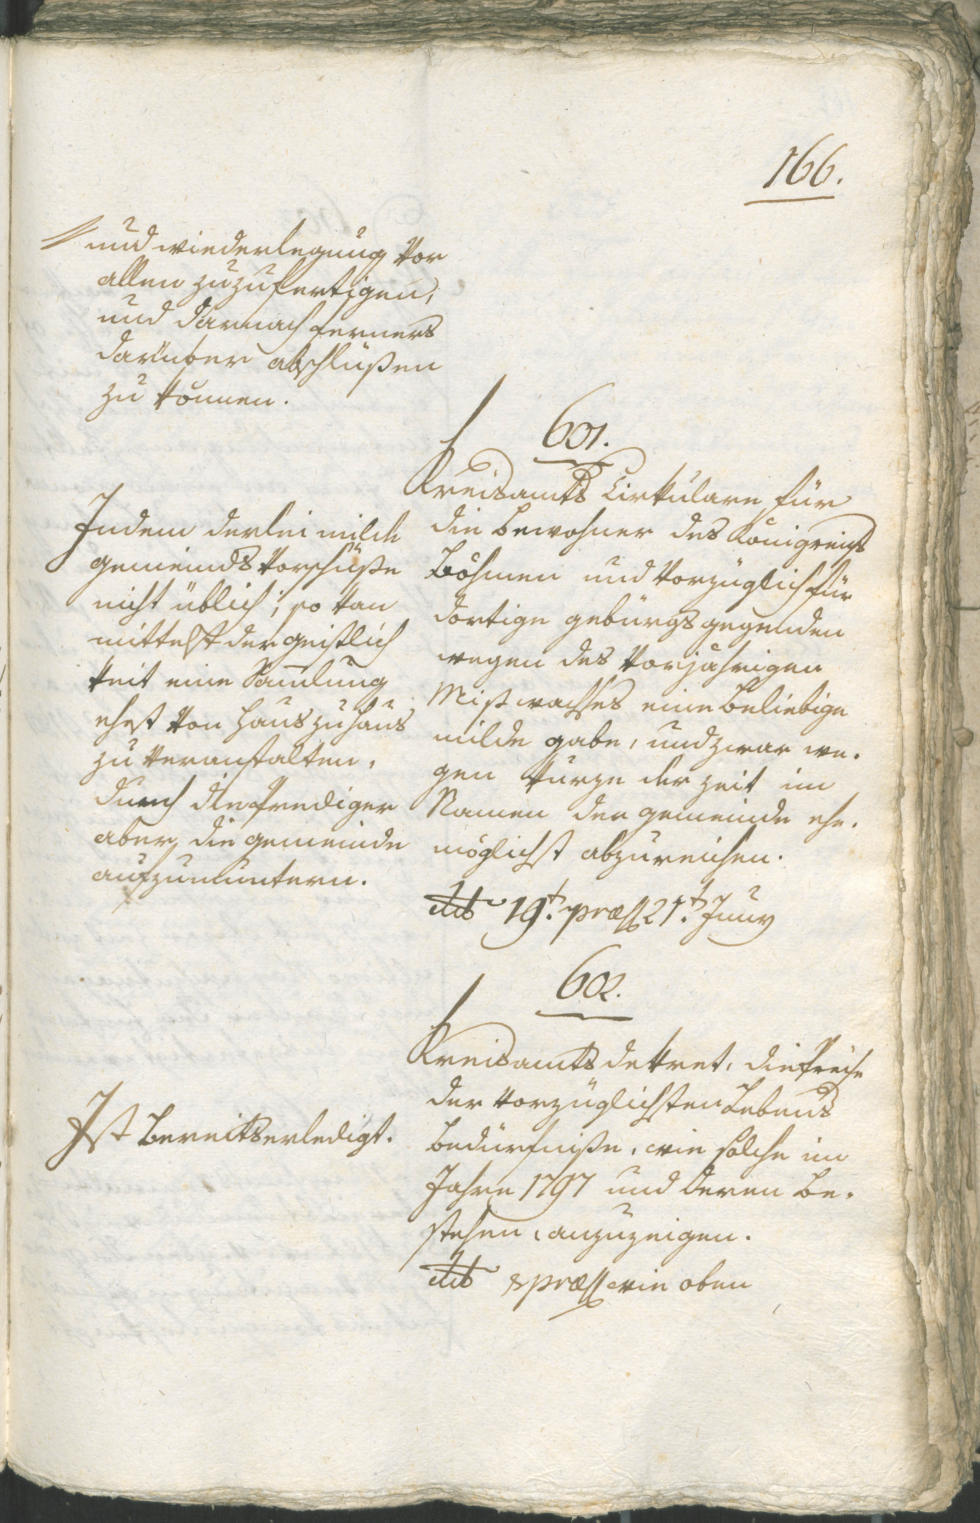 166.
und wiederlegung vor
allen zuzufertigen,
und darnach ferners
darüber abschlüßen
zu können.
Indem derlei milde
gemeinds Vorschüße
nicht üblich; so kan
mittelst der geistlich
keit eine Samlung
ehest von Haus zu Haus
zu veranstalten,
durch die Prediger
aber, die gemeinde
aufzumuntern.
601.
Kreisamts Cirkulare für
die bewohner des Königreichs
Böhmen und vorzüglich für
dortige gebürgs gegenden
wegen des vorjährigen
Mißwachses eine beliebige
milde gabe, und zwar we.
gen kürze der zeit im
Namen der gemeinde ehe.
möglichst abzureichen.
dto 19t. præs 21t. Juny
602.
Kreisamts dekret, die Preise
der vorzüglichsten Lebens
bedürfniße, wie solche im
Jahre 1797 und deren be.
stehen, anzuzeigen.
dto & præs wie oben
Ist bereits erledigt.